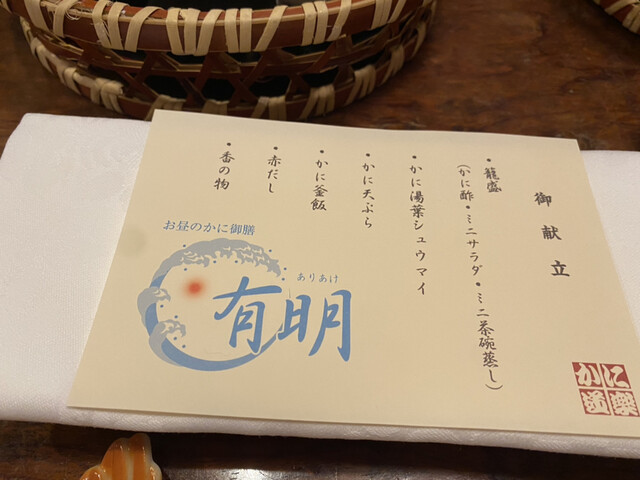 御献立
・籠盛
(かに酢・ミニサラダ・ミニ茶碗蒸し)
・かに湯葉シュウマイ
・かに天ぷら
・かに釜飯
・赤だし
・香の物
お昼のかに御膳
ありあけ
有明
かに
道楽